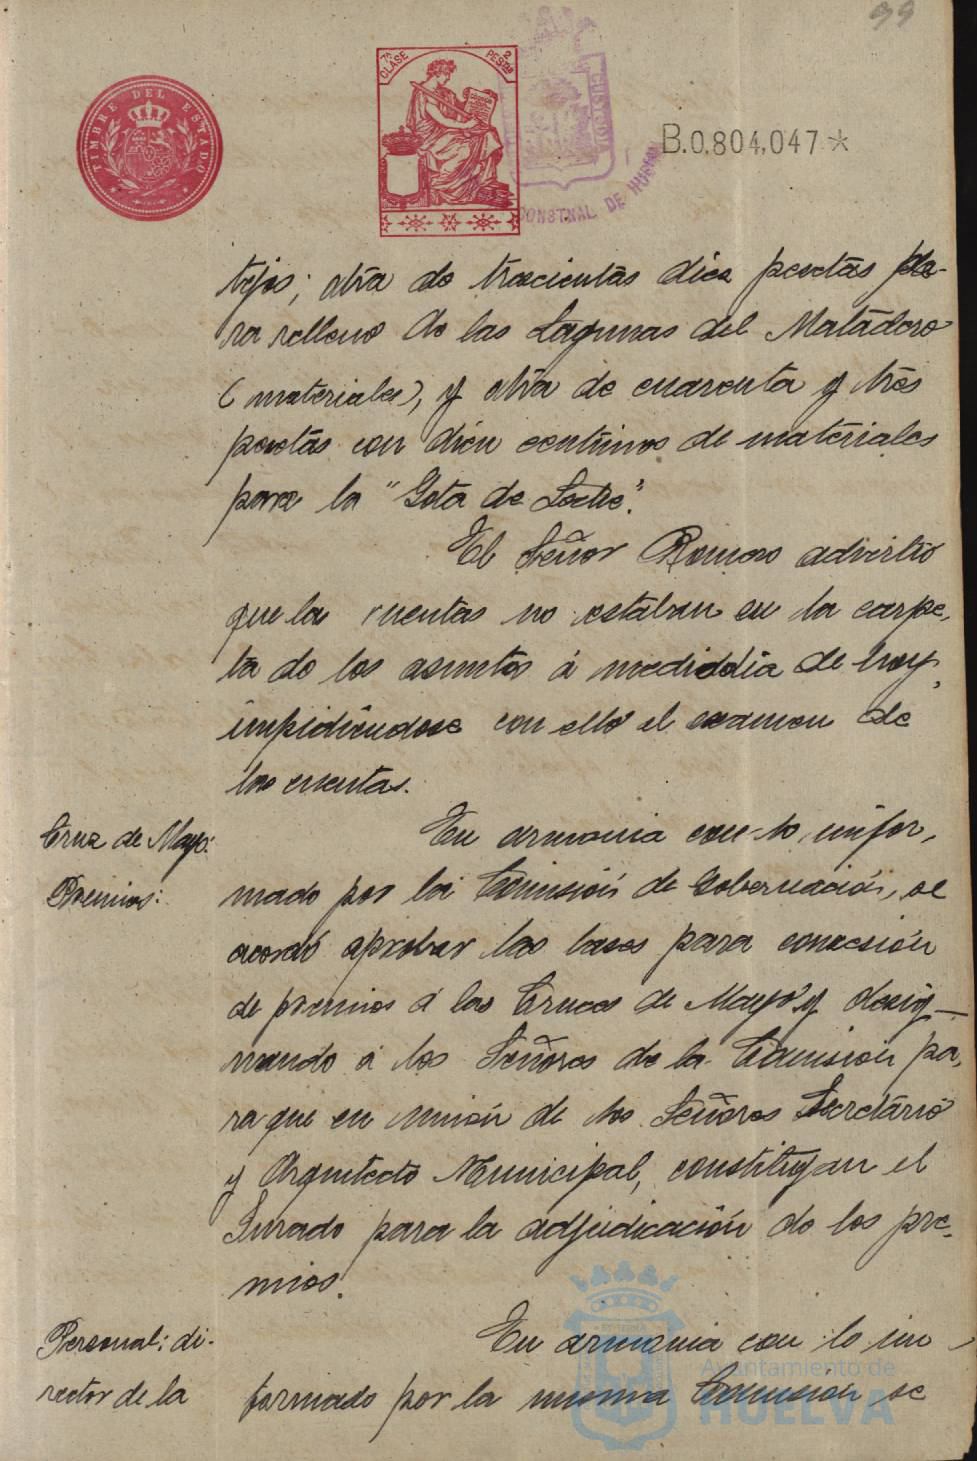 99
TIMBRE DEL ESTADO
7ª CLASE 2 PESTAS
CONSTNAL. DE HUELVA
B.0.804,047*
tejos; otra de trescientas diez pesetas pa-
ra relleno de las Lagunas del Matadero
(materiales), y otra de cuarenta y tres
pesetas con cien centimos de materiales
para la "Gota de Leche".
El Señor Romero advirtió
que las cuentas no estaban en la carpe-
ta de los asuntos á mediodia de hoy,
impidiéndose con ello el examen de
las cuentas.
Cruz de Mayo:
Premios:
En armonia con lo infor-
mado por la Comisión de Gobernación, se
acordó aprobar las bases para concesión
de premios á las Cruces de Mayo y desig-
nando á los Señores de la Comisión pa-
ra que en unión de los Señores Secretario
y Arquitecto Municipal, constituyan el
Jurado para la adjudicación de los pre-
mios.
Personal: di-
rector de la
En armonia con lo in-
formado por la misma Comisión se
Ayuntamiento de
HUELVA